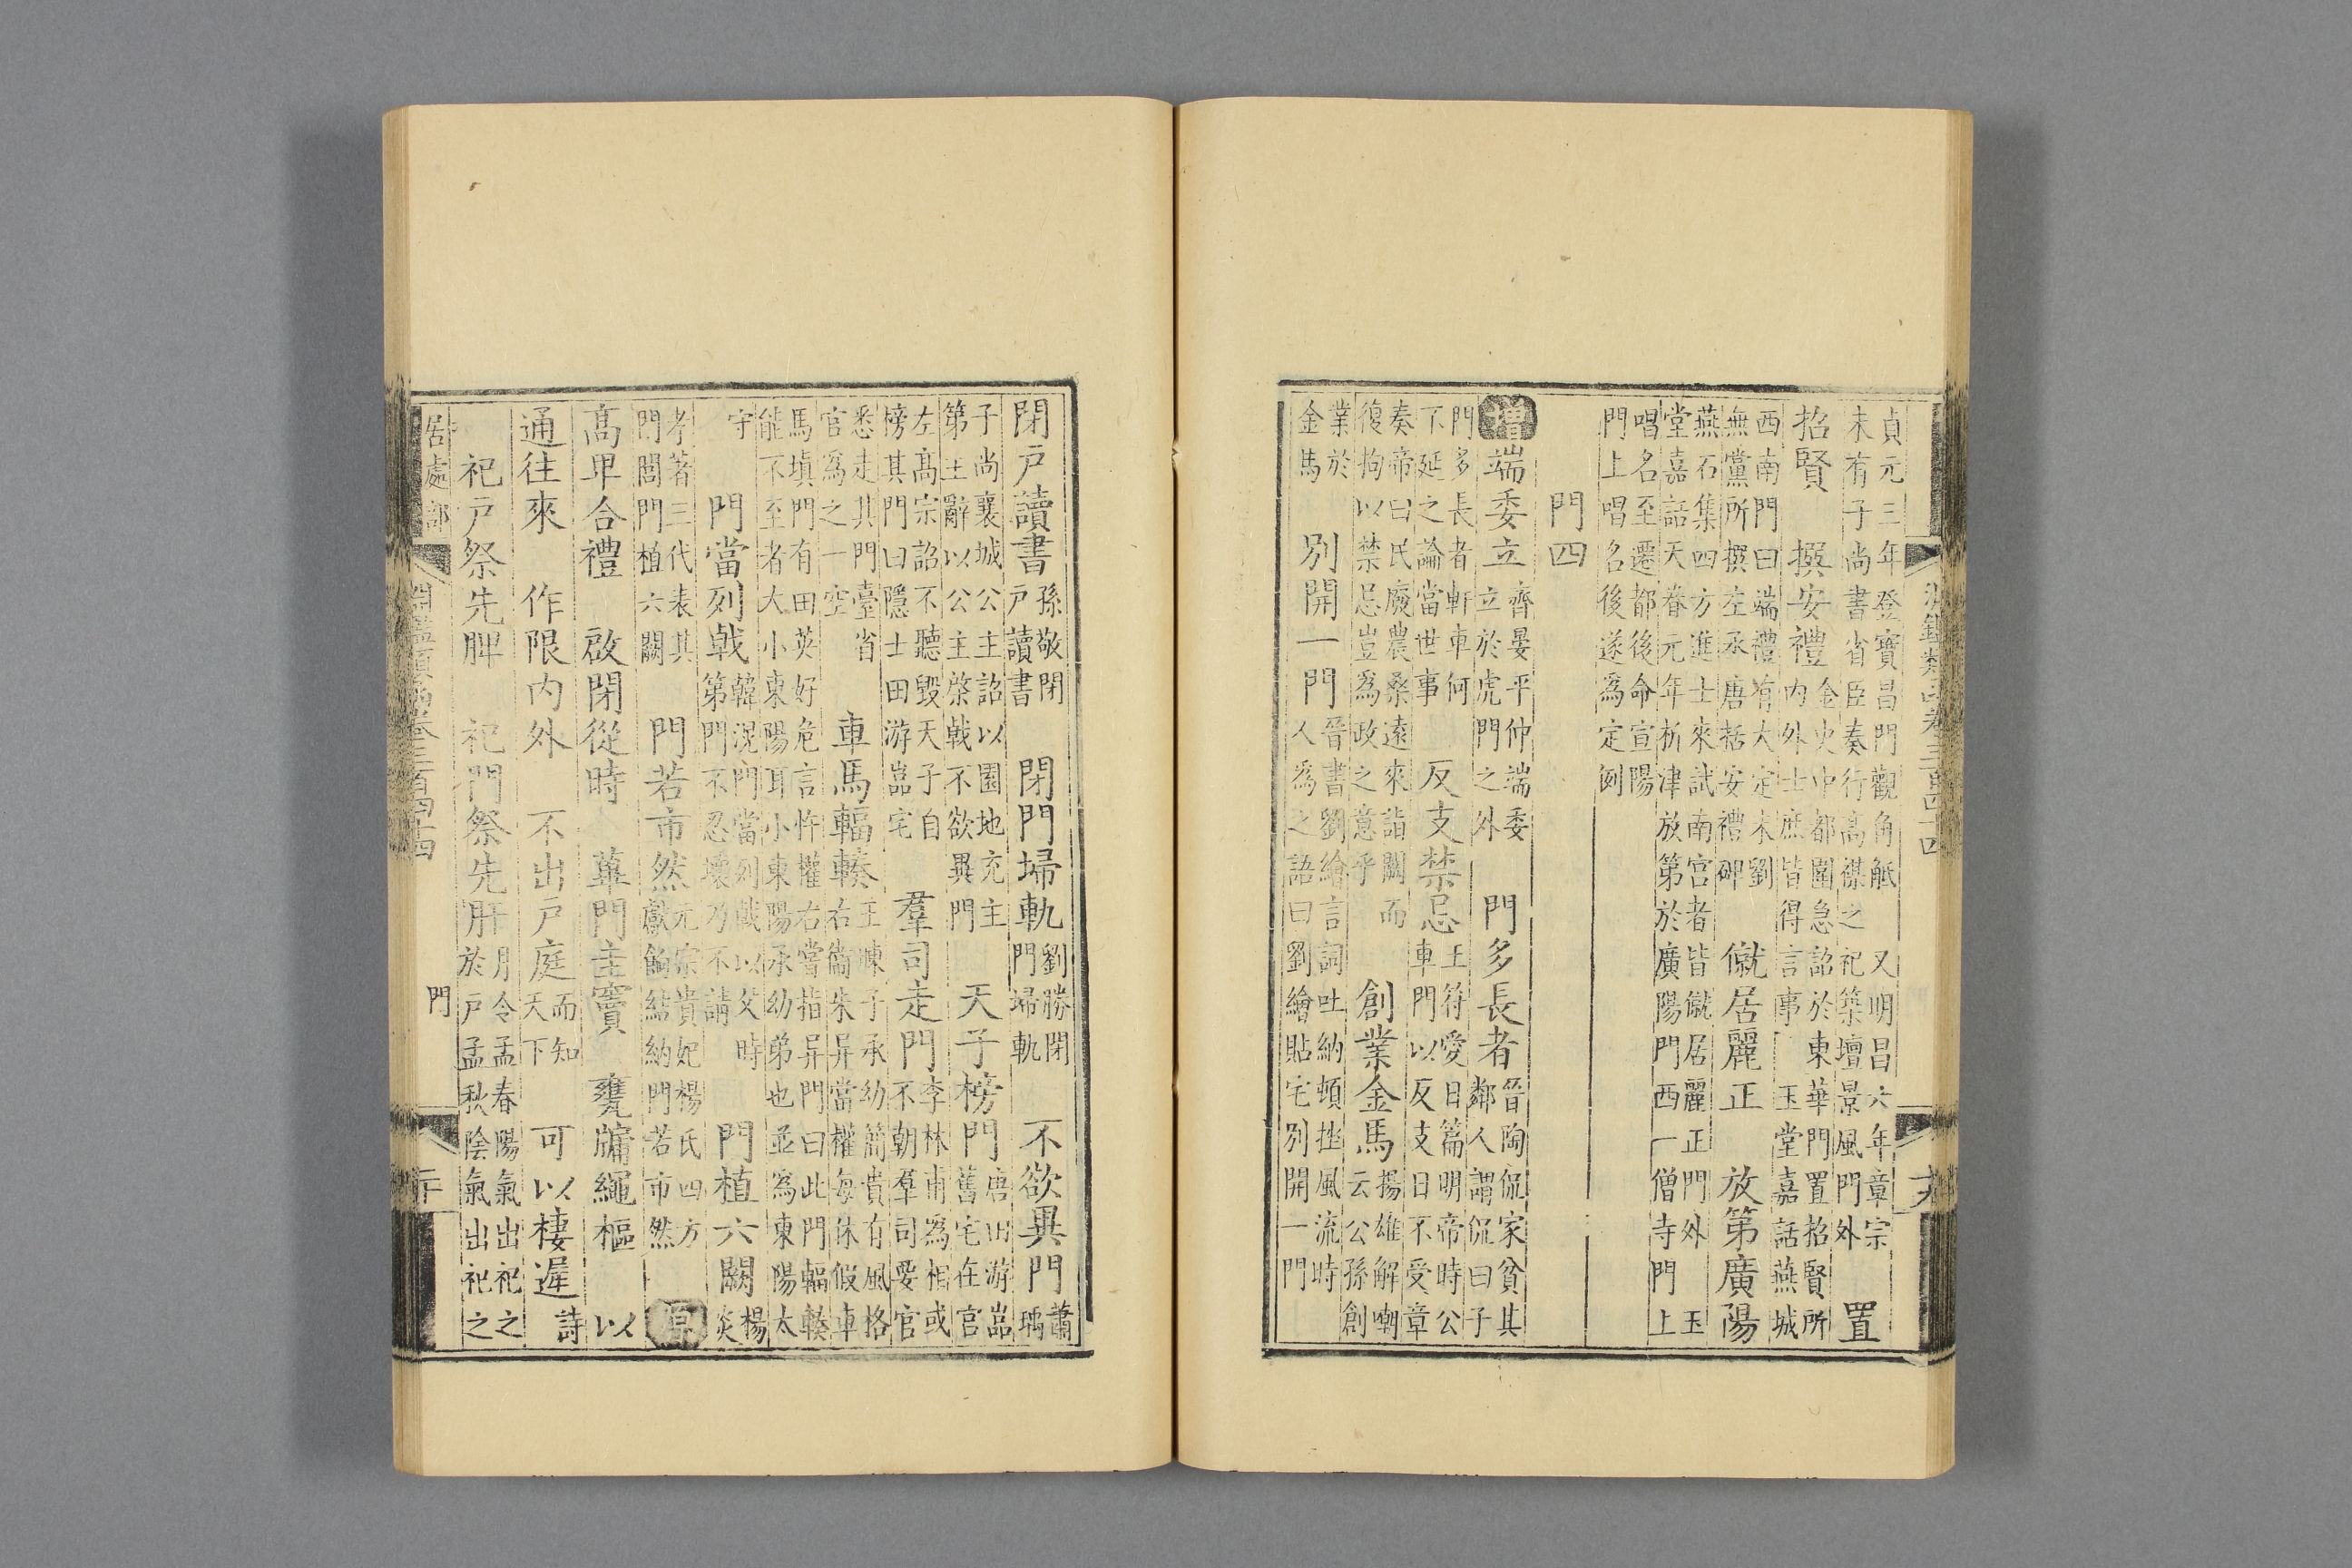 淵鑑類函卷三百四十四 十九
貞元三年登寶昌門觀角觝 又明昌六年章宗
未有子尚書省臣奏行高禖之祀築壇景風門外
置
招賢 撰安禮
金史中都圍急詔於東華門置招賢所
内外士庶皆得言事 玉堂嘉話燕城
西南門曰端禮有大定末劉
無黨所撰左丞唐括安禮碑
僦居麗正 放第廣陽
燕石集四方進士來試南宮者皆僦居麗正門外 玉
堂嘉話天眷元年析津放第於廣陽門西一僧寺門上
唱名至遷都後命宣陽
門上唱名後遂爲定例
門四
增端委立
齊晏平仲端委
立於虎門之外
門多長者
晉陶侃家貧其
鄰人謂侃曰子
門多長者軒車何
下延之論當世事
反支禁忌
王符愛日篇明帝時公
車門以反支日不受章
奏帝曰民廢農桑遠來詣闕而
復拘以禁忌豈爲政之意乎
創業金馬
揚雄解嘲
云公孫創
業於
金馬
別開一門
晉書劉繪言詞吐納頓挫風流時
人爲之語曰劉繪貼宅別開一門
閉戸讀書
孫敬閉
戸讀書
閉門埽軌
劉勝閉
門埽軌
不欲異門
蕭
瑀
子尚襄城公主詔以園地充主
第主辭以公主棨戟不欲異門
天子榜門
唐田游巖
舊宅在宮
左高宗詔不聽毀天子自
榜其門曰隱士田游巖宅
羣司走門
李林甫爲相或
不朝羣司要官
悉走其門臺省
官爲之一空
車馬輻輳
王暕子承幼簡貴有風格
右衛朱异當權每休假車
馬填門有田英好危言忤權右嘗指异門曰此門輻輳
能不至者大小東陽耳小東陽承幼弟也並爲東陽太
守
門當列戟
韓滉門當列戟以父時
第門不忍壞乃不請
門植六闕
楊
炎
孝著三代表其
門閭門植六闕
門若市然
元宗貴妃楊氏四方
獻餉結納門若市然
原
高卑合禮 啟閉從時 蓽門圭竇 甕牖繩樞 以
通往來 作限内外 不出戸庭
而知
天下
可以棲遲
詩
祀戸祭先脾 祀門祭先肝
月令孟春陽氣出祀之
於戸孟秋陰氣出祀之
居處部 淵鑑類函卷三百四十四 門 二十